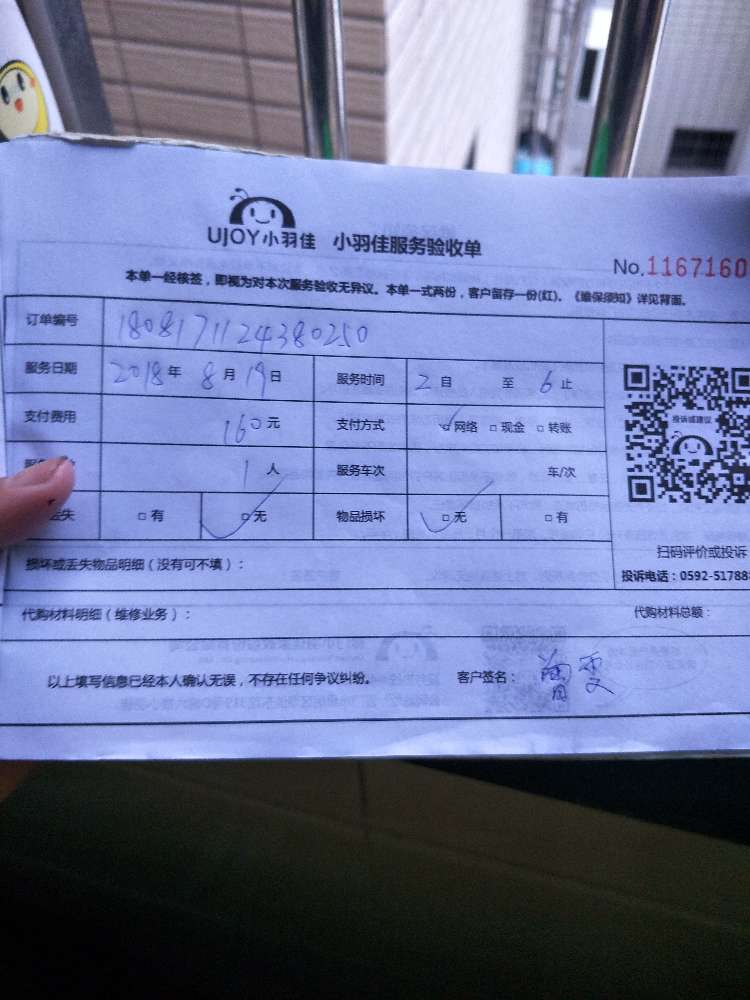 UJOY小羽佳 小羽佳服务验收单
No.1167160
本单一经核签，即视为对本次服务验收无异议。本单一式两份，客户留存一份(红)。《维保须知》详见背面。
订单编号 1808171124380250
服务日期 2018年 8月 19日 服务时间 2自 至 6止
支付费用 160元 支付方式 网络 现金 转账
投诉或建议
1人 服务车次 车/次
丢失 有 无 物品损坏 无 有
扫码评价或投诉
损坏或丢失物品明细（没有可不填）：
投诉电话：0592-51788
代购材料明细（维修业务）： 代购材料总额：
以上填写信息已经本人确认无误，不存在任何争议纠纷。 客户签名：